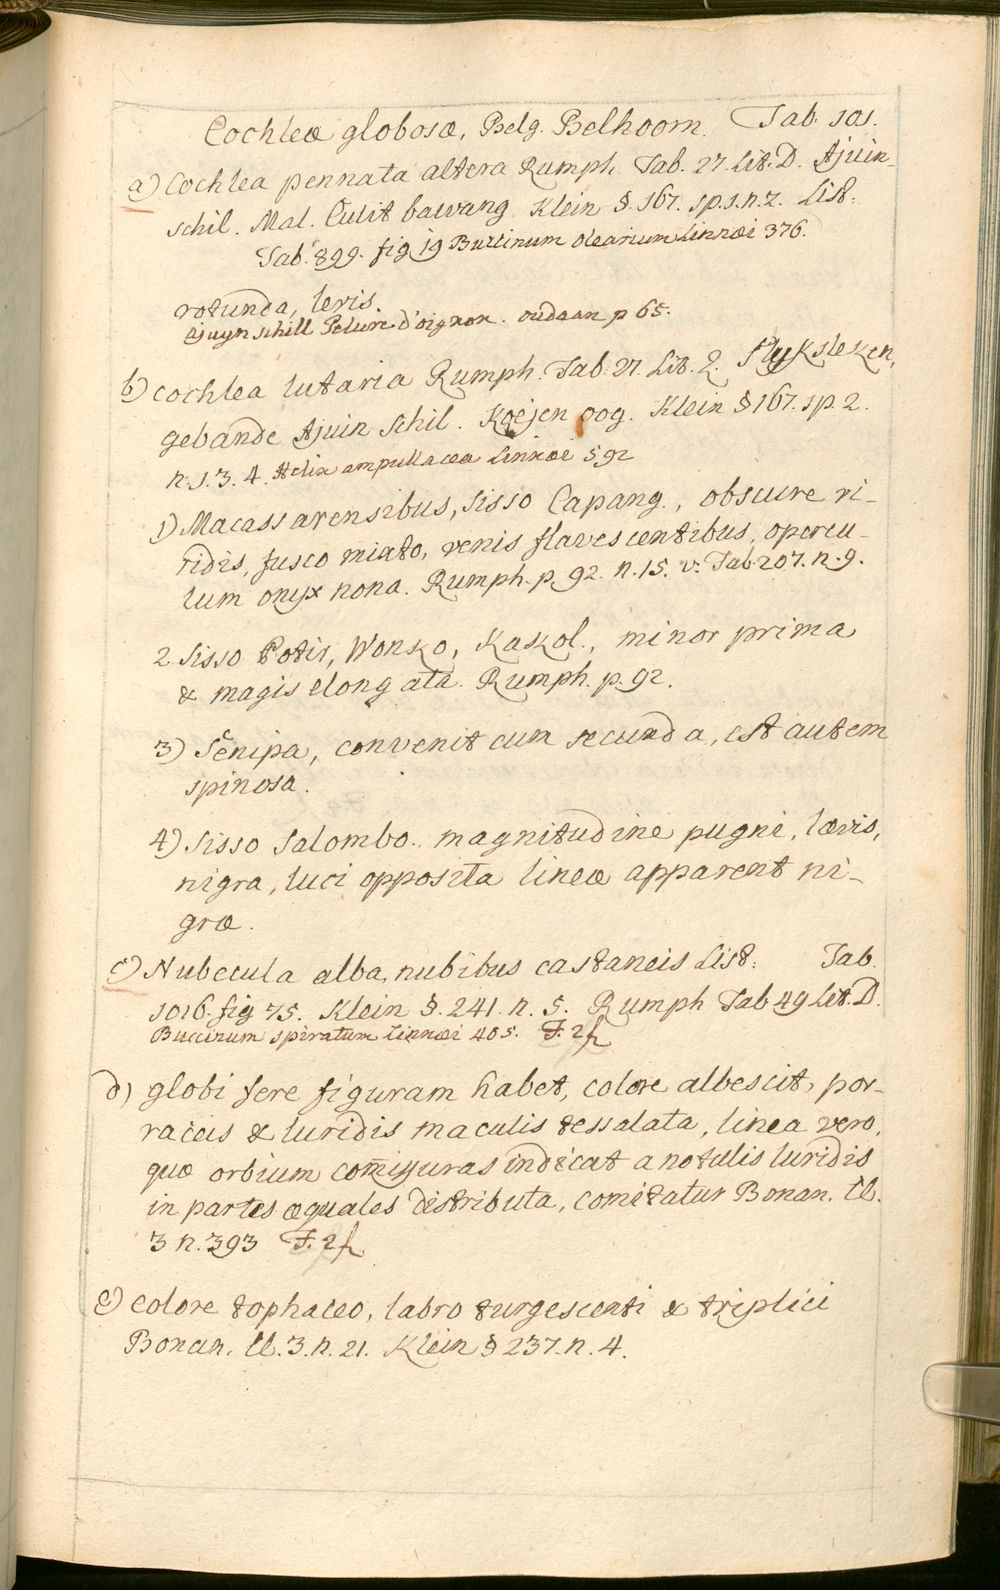 Cochleæ globosæ, Belg. Belhoorn. Tab. 101.
a) Cochlea pennata altera Rumph. Tab. 27. Lit. D. Ajuin-
schil. Mal. Culit bawang Klein §. 167. sp. 1. n. 2. List.
Tab. 899. fig 19 Buccinum olearium Linnæi 376.
rotunda, levis.
Ajuyn schill Pelure d'oignon. oudaan p 65.
b) cochlea lutaria Rumph. Tab. 27. Lit. Q. Slykslekken,
gebande Ajuin schil. Koejen oog. Klein § 167. sp. 2.
n. 1. 3. 4. Helix ampullacea Linnæi 592
1) Macassarensibus, sisso Capang., obscure vi-
ridis, fusco mixto, venis flavescentibus, opercu-
lum onyx nona. Rumph. p. 92. n. 15. v. Tab. 207. n. 9.
2. sisso Potir, Wonko, Kakol., minor prima
& magis elongata. Rumph. p. 92.
3) Senipa, convenit cum secunda, est autem
spinosa.
4) sisso salombo. magnitudine pugni, lævis,
nigra, luci opposita lineæ apparent ni-
græ.
c) Nubecula alba, nubibus castaneis List. Tab.
1016. fig 75. Klein §. 241. n. 5. Rumph Tab 49 Lit. D.
Buccinum spiratum Linnæi 405. F. 2
d) globi fere figuram habet, colore albescit, por-
raceis & luridis maculis tessalata, linea vero,
quæ orbium comissuras indicat a notulis luridis
in partes æquales distributa, comitatur Bonan. Cl.
3 n. 393 F. 2
e) colore tophaceo, labro turgescenti & triplici
Bonan. Cl. 3. n. 21. Klein § 237. n. 4.